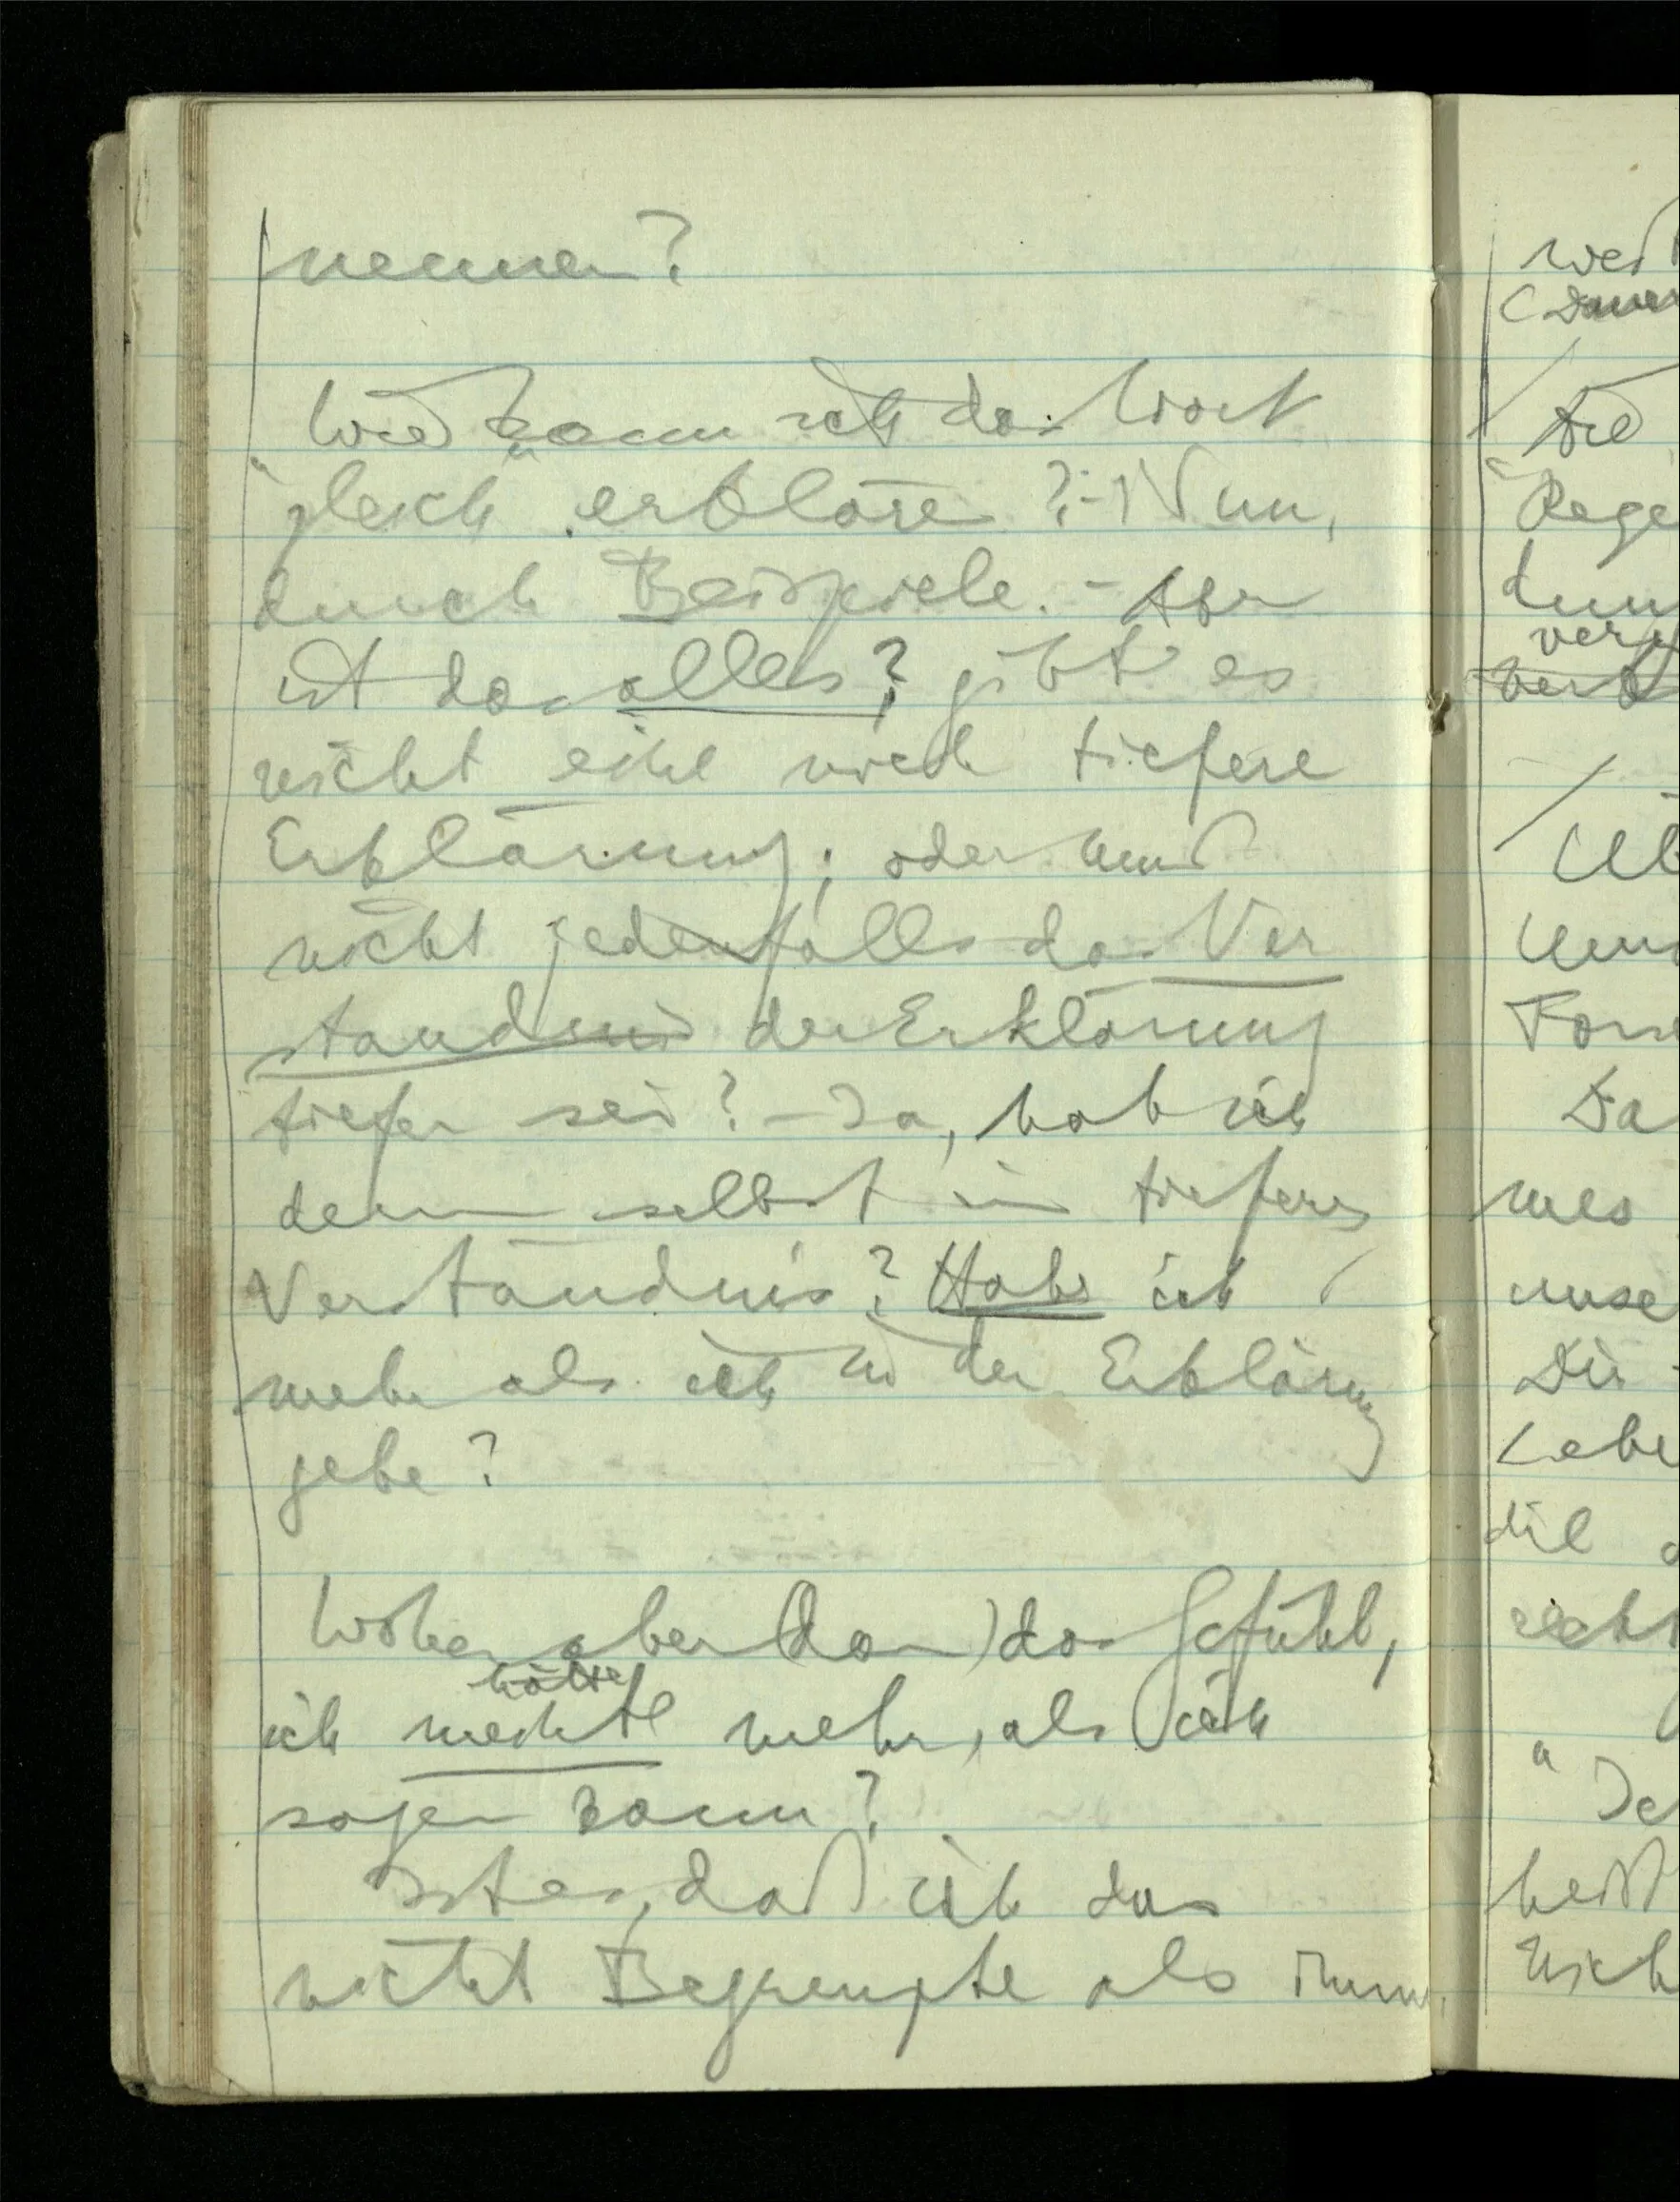 nennen?
Wie kann ich das Wort
"gleich" erkläre?–Nun,
durch Beispiele. – Aber
ist das alles? gibt es
nicht eine noch tiefere
Erklärung; oder muß
nicht jedenfalls das Ver
ständnis der Erklärung
tiefer sei? – Ja, hab ich
denn selbst ein tieferes
Verständnis? Habe ich
mehr als ich in der Erklärung
gebe?
Woher aber (dann) das Gefühl,
hätte
ich mehr, als ich
sagen kann?
Ist es, daß ich das
nicht Begrenzte als